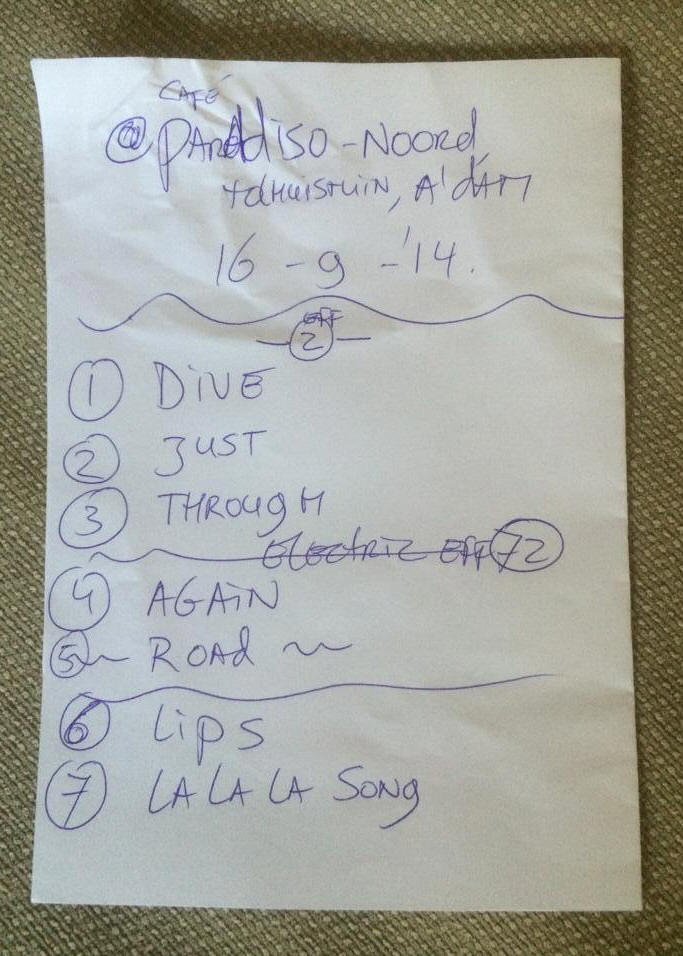 CAFÉ
@ PARADISO - NOORD,
TOLHUISTUIN, A'DAM
16 - 9 - '14.
EFF
2
1 DIVE
2 JUST
3 THROUGH
ELECTRIC EFF 72
4 AGAIN
5 ~ ROAD ~
6 Lips
7 LA LA LA SONG